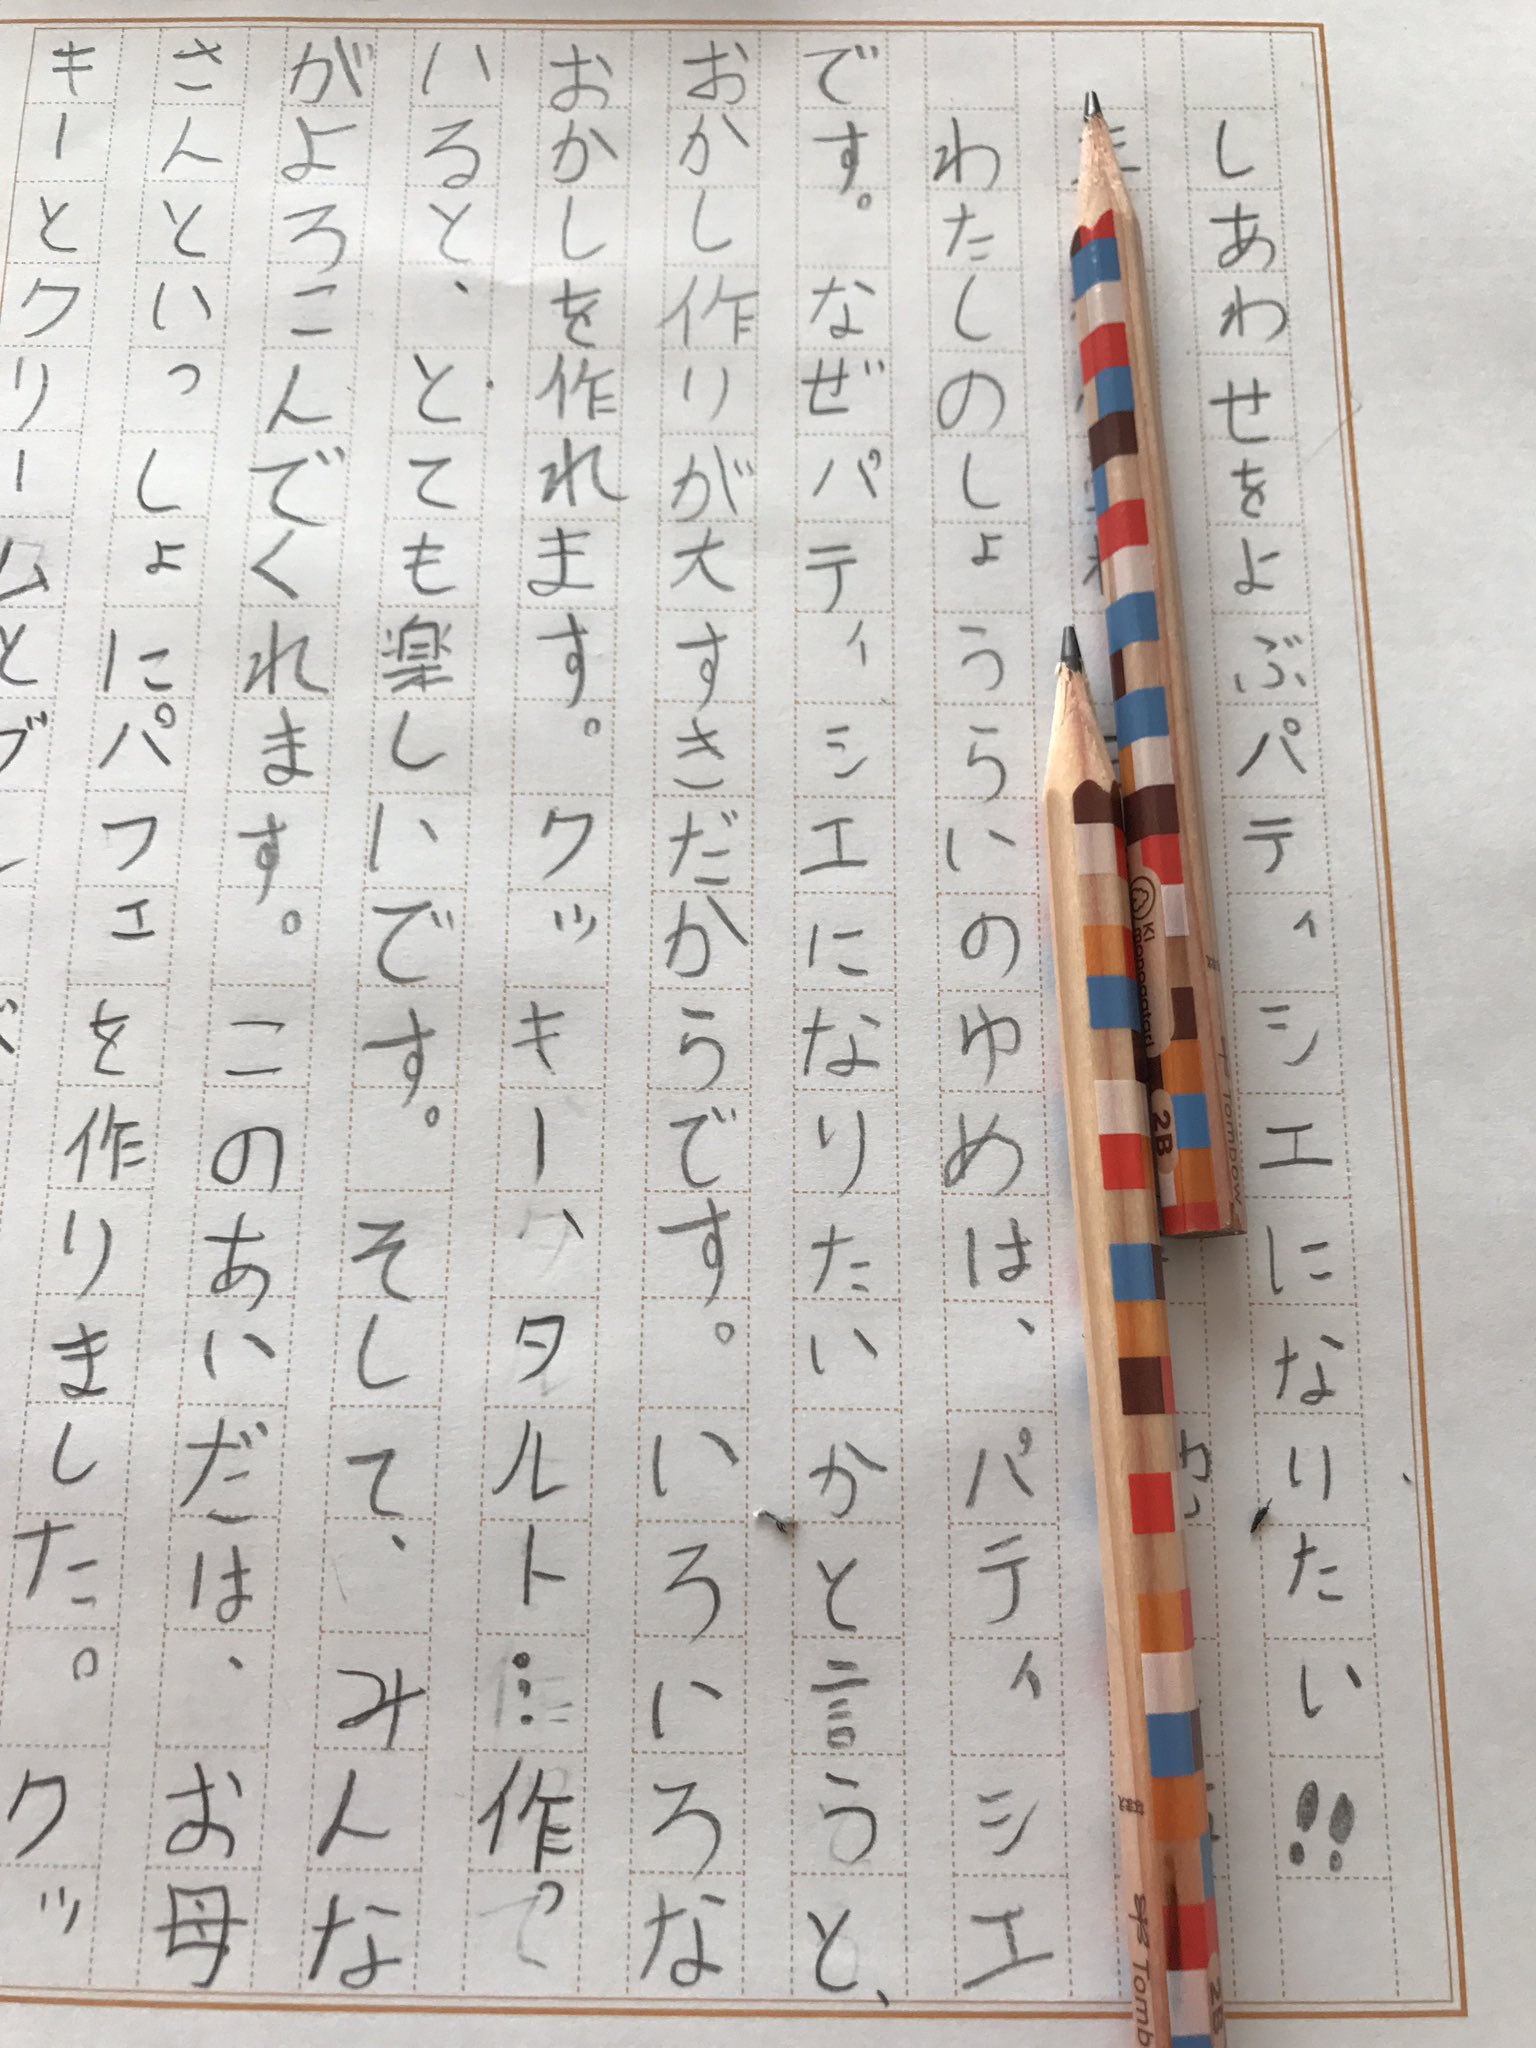 しあわせをよぶパティシエになりたい!!
わたしのしょうらいのゆめは、パティシエ
です。なぜパティシエになりたいかと言うと、
おかし作りが大すきだからです。いろいろな
おかしを作れます。クッキー、タルト…作って
いると、とても楽しいです。そして、みんな
がよろこんでくれます。このあいだは、お母
さんといっしょにパフェを作りました。クッ
キーとクリームとブ
KI monogatari
2B
Tombow
Tomb
2B